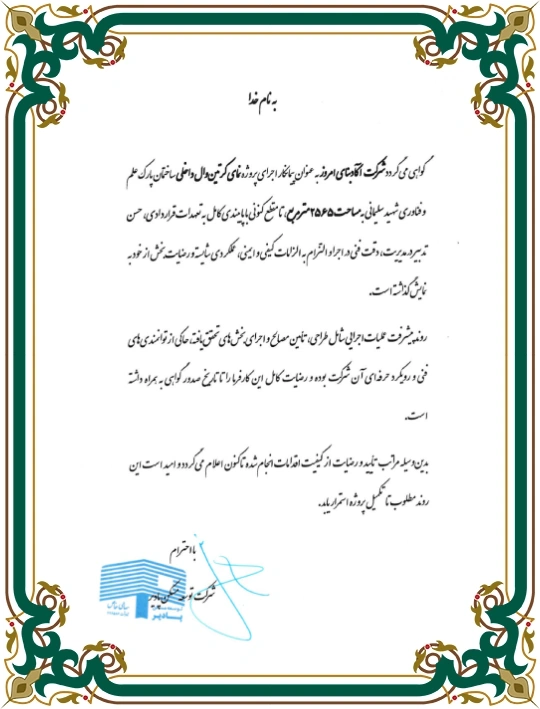 به نام خدا
گواهی می‌گردد شرکت آگاد بنای امروز به عنوان پیمانکار اجرای پروژه نمای کرتین وال داخلی ساختمان پارک علم
و فناوری شهید سلیمانی به مساحت ۲۵۶۵ مترمربع، تا مقطع کنونی با پایبندی کامل به تعهدات قراردادی، حسن
تدبیر در مدیریت، دقت فنی در اجرا و التزام به الزامات کیفی و ایمنی، عملکردی شایسته و رضایت‌بخش از خود به
نمایش گذاشته است.
روند پیشرفت عملیات اجرایی شامل طراحی، تأمین مصالح و اجرای بخش‌های تحقق یافته، حاکی از توانمندی‌های
فنی و رویکرد حرفه‌ای آن شرکت بوده و رضایت کامل این کارفرما را تا تاریخ صدور گواهی به همراه داشته
است.
بدین وسیله مراتب تأیید و رضایت از کیفیت اقدامات انجام شده تاکنون اعلام می‌گردد و امید است این
روند مطلوب تا تکمیل پروژه استمرار یابد.
با احترام
شرکت توسعه مسکن پادیر
پادیر